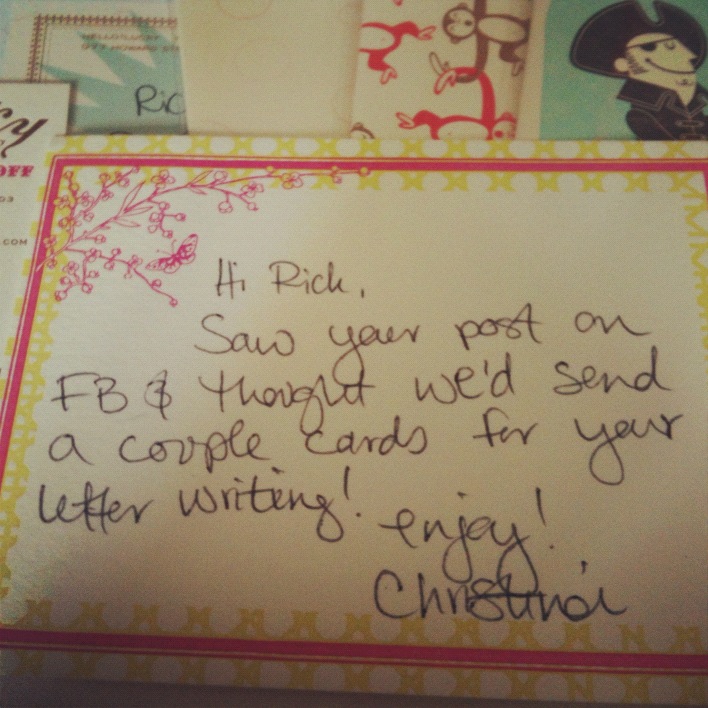 HELLO!LUCKY
977 HOWARD ST
Ric
OFF
.COM
Hi Rich,
Saw your post on
FB & thought we'd send
a couple cards for your
letter writing!
enjoy!
Christina